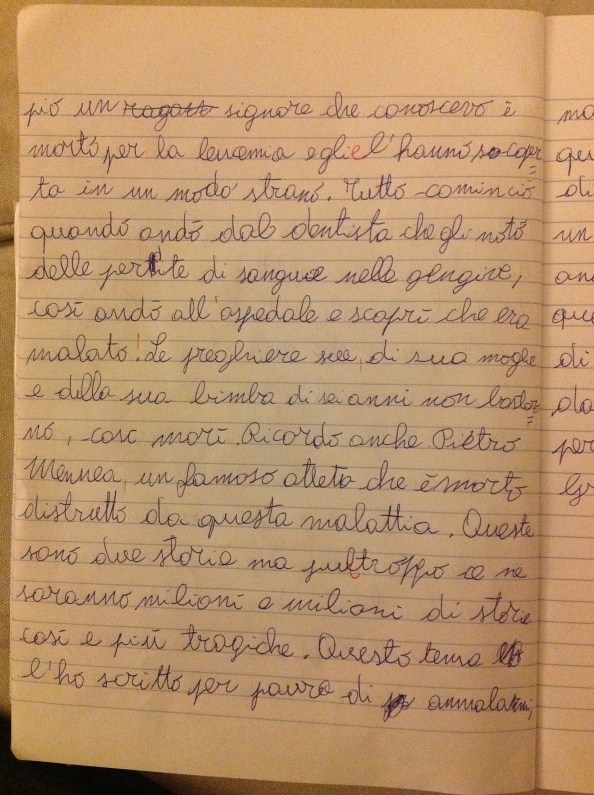 più un ragazzo signore che conoscevo è
morto per la leucemia e gliel'hanno scoper=
ta in un modo strano. Tutto cominciò
quando andò dal dentista che gli notò
delle perdite di sangue nelle gengive,
così andò all'ospedale e scoprì che era
malato! Le preghiere sue, di sua moglie
e della sua bimba di sei anni non basta=
no, così morì. Ricordo anche Pietro
Mennea, un famoso atleta che è morto
distrutto da questa malattia. Queste
sono due storie ma pultroppo ce ne
saranno milioni e milioni di storie
così e più tragiche. Questo tema
l'ho scritto per paura di ammalarmi,
ma
qu
di
un
an
que
di
da
per